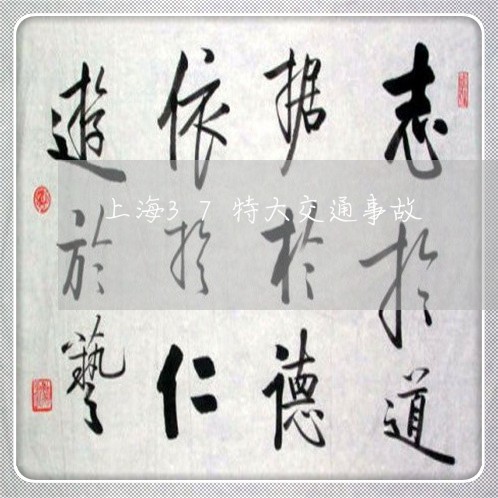 志於道
据於德
依於仁
遊於藝
上海3 7 特大交通事故